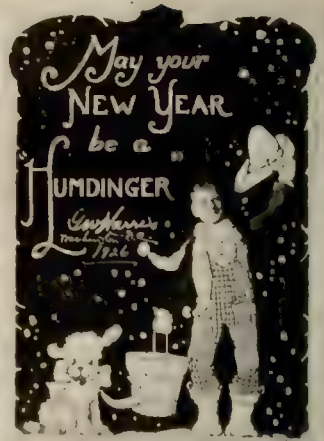 May your
NEW YEAR
be a
HUMDINGER
Geo Harris
Washington D.C.
1926